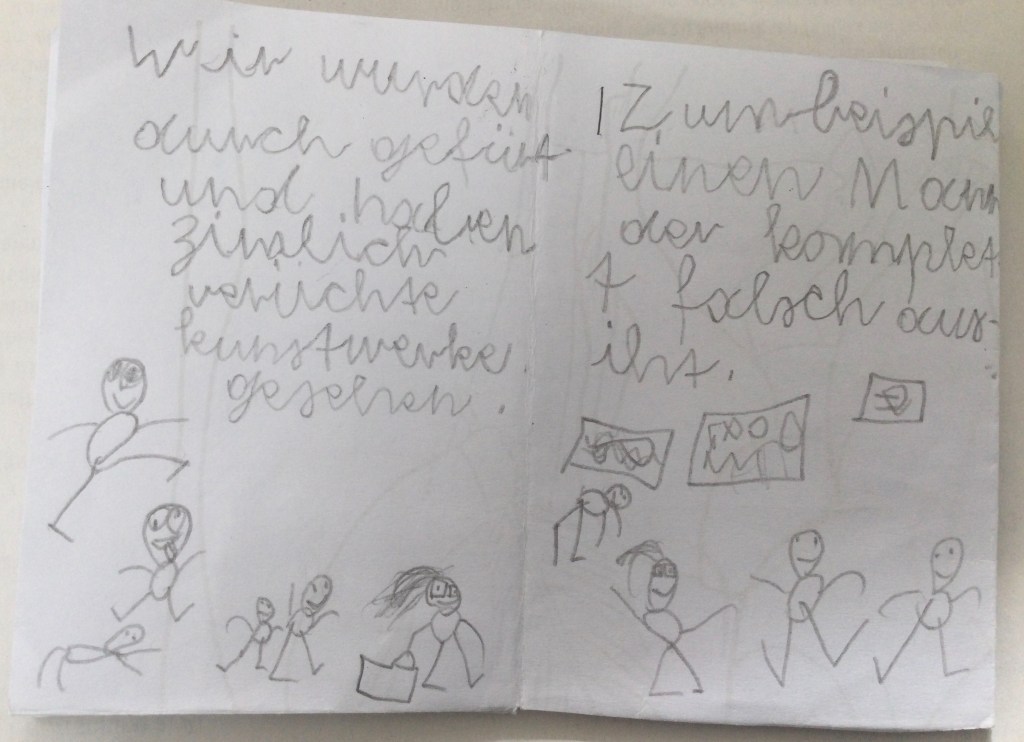 Wir wurden
durch gefürt
und haben
zimlich
verüchte
kunstwerke
gesehen.
Zum beispiel
einen Mann
der komplet
t falsch aus-
siht.